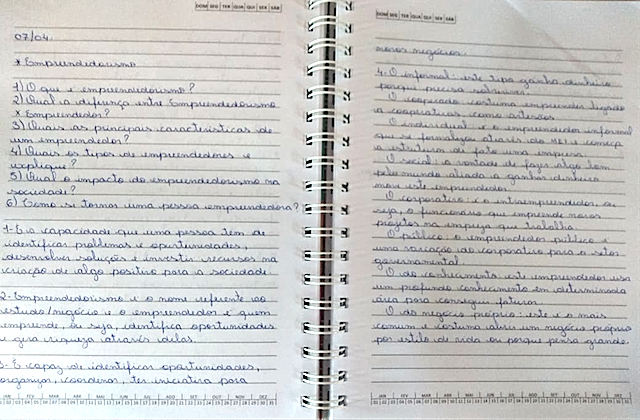 DOM SEG TER QUA QUI SEX SÁB
07/04.
* Empreendedorismo
1) O que é empreendedorismo?
2) Qual a diferença entre Empreendedorismo
x Empreendedor?
3) Quais as principais características de
um empreendedor?
4) Quais os tipos de empreendedores e
explique?
5) Qual o impacto do empreendedorismo na
sociedade?
6) Como se tornar uma pessoa empreendedora?
1- É a capacidade que uma pessoa tem de
identificar problemas e oportunidades,
desenvolver soluções e investir recursos na
criação de algo positivo para a sociedade.
2- Empreendedorismo é o nome referente ao
estudo/negócio e o empreendedor é quem
empreende, ou seja, identifica oportunidades
e gera riqueza através delas.
3- É capaz de identificar oportunidades,
organizar, coordenar, ter iniciativa para
JAN FEV MAR ABR MAI JUN JUL AGO SET OUT NOV DEZ
DOM SEG TER QUA QUI SEX SÁB
novos negócios.
4- O informal: este tipo ganha dinheiro
porque precisa sobreviver.
O cooperado: costuma empreender ligado
a cooperativas, como artesãos.
O individual: é o empreendedor informal
que se formalizou através do MEI e começa
a estruturar de fato uma empresa.
O social: a vontade de fazer algo bom
pelo mundo aliada a ganhar dinheiro
move este empreendedor.
O corporativo: é o intraempreendedor, ou
seja, o funcionário que empreende novos
projetos na empresa que trabalha.
O público: o empreendedor público é
uma variação do corporativo para o setor
governamental.
O do conhecimento: este empreendedor usa
um profundo conhecimento em determinada
área para conseguir faturar.
O do negócio próprio: este é o mais
comum e costuma abrir um negócio próprio
por estilo de vida ou porque pensa grande.
JAN FEV MAR ABR MAI JUN JUL AGO SET OUT NOV DEZ